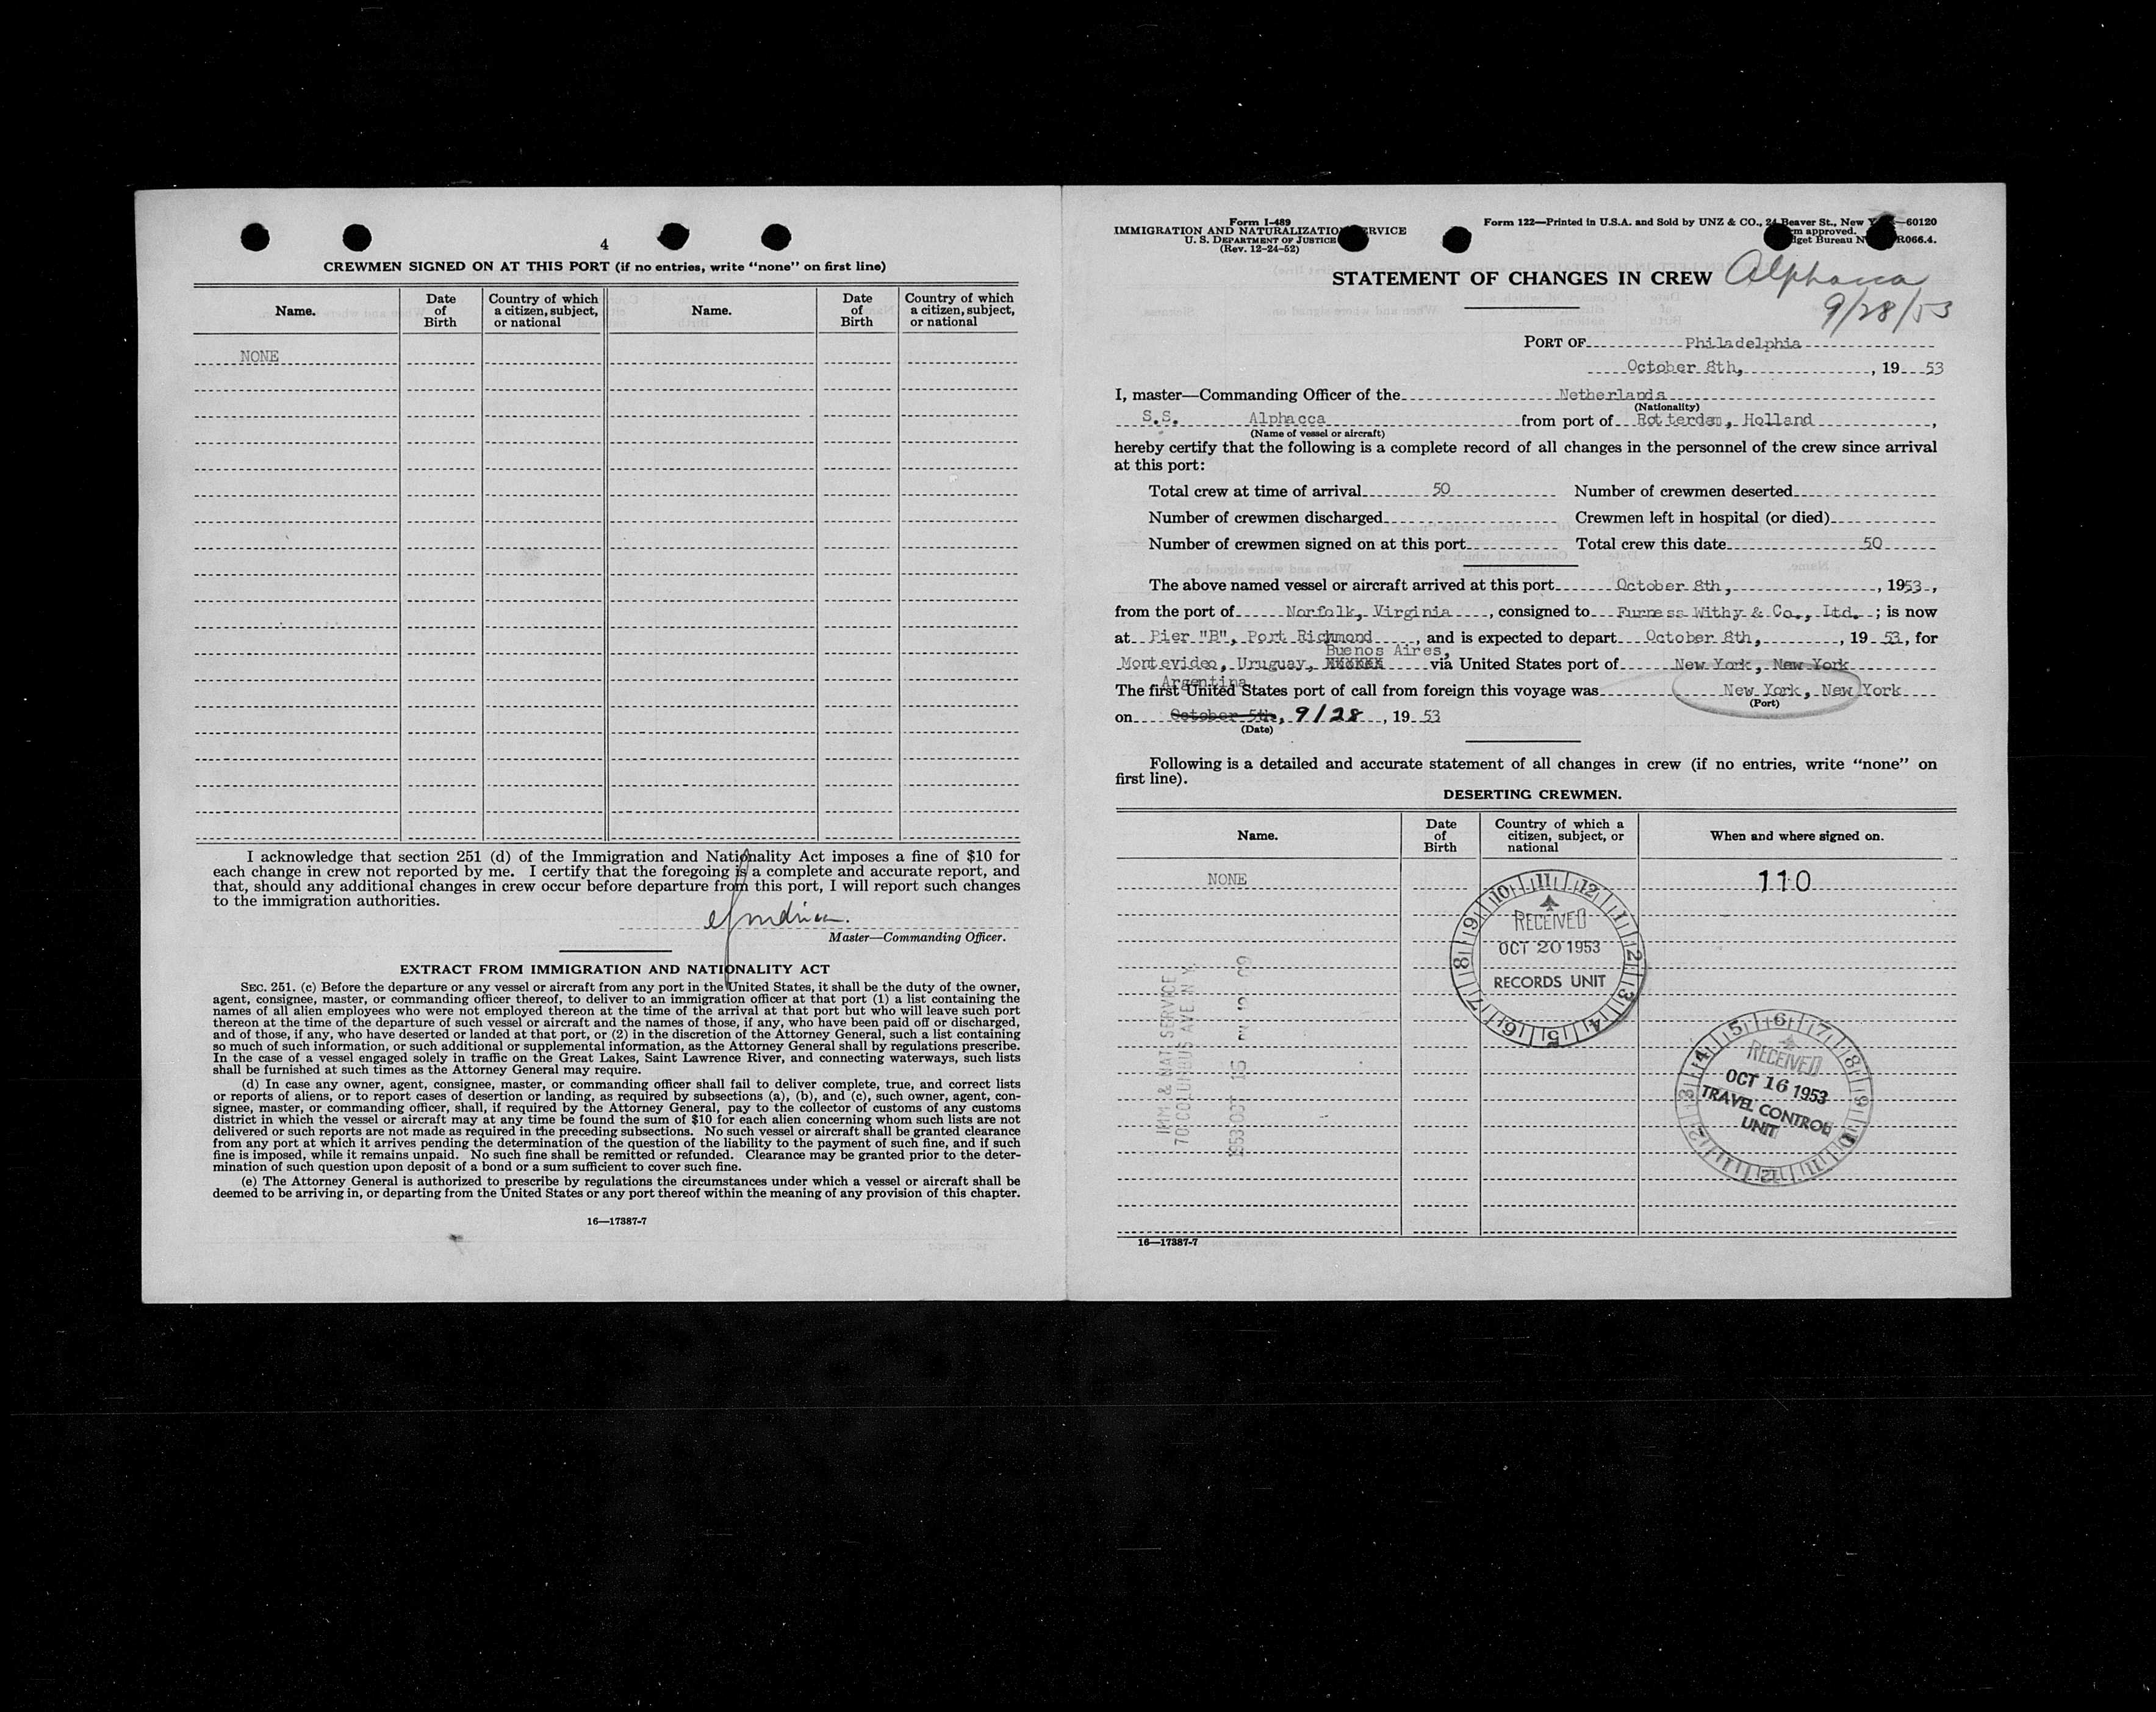 4
CREWMEN SIGNED ON AT THIS PORT (if no entries, write “none” on first line)
Name. Date of Birth Country of which a citizen, subject, or national Name. Date of Birth Country of which a citizen, subject, or national
NONE
I acknowledge that section 251 (d) of the Immigration and Nationality Act imposes a fine of $10 for
each change in crew not reported by me. I certify that the foregoing is a complete and accurate report, and
that, should any additional changes in crew occur before departure from this port, I will report such changes
to the immigration authorities.
Master—Commanding Officer.
EXTRACT FROM IMMIGRATION AND NATIONALITY ACT
SEC. 251. (c) Before the departure or any vessel or aircraft from any port in the United States, it shall be the duty of the owner,
agent, consignee, master, or commanding officer thereof, to deliver to an immigration officer at that port (1) a list containing the
names of all alien employees who were not employed thereon at the time of the arrival at that port but who will leave such port
thereon at the time of the departure of such vessel or aircraft and the names of those, if any, who have been paid off or discharged,
and of those, if any, who have deserted or landed at that port, or (2) in the discretion of the Attorney General, such a list containing
so much of such information, or such additional or supplemental information, as the Attorney General shall by regulations prescribe.
In the case of a vessel engaged solely in traffic on the Great Lakes, Saint Lawrence River, and connecting waterways, such lists
shall be furnished at such times as the Attorney General may require.
(d) In case any owner, agent, consignee, master, or commanding officer shall fail to deliver complete, true, and correct lists
or reports of aliens, or to report cases of desertion or landing, as required by subsections (a), (b), and (c), such owner, agent, con-
signee, master, or commanding officer, shall, if required by the Attorney General, pay to the collector of customs of any customs
district in which the vessel or aircraft may at any time be found the sum of $10 for each alien concerning whom such lists are not
delivered or such reports are not made as required in the preceding subsections. No such vessel or aircraft shall be granted clearance
from any port at which it arrives pending the determination of the question of the liability to the payment of such fine, and if such
fine is imposed, while it remains unpaid. No such fine shall be remitted or refunded. Clearance may be granted prior to the deter-
mination of such question upon deposit of a bond or a sum sufficient to cover such fine.
(e) The Attorney General is authorized to prescribe by regulations the circumstances under which a vessel or aircraft shall be
deemed to be arriving in, or departing from the United States or any port thereof within the meaning of any provision of this chapter.
16—17387-7
Form I-489
IMMIGRATION AND NATURALIZATION SERVICE
U. S. DEPARTMENT OF JUSTICE
(Rev. 12-24-52)
Form 122—Printed in U.S.A. and Sold by UNZ & CO., 24 Beaver St., New —60120
approved.
Bureau R066.4.
STATEMENT OF CHANGES IN CREW Alphacca
9/28/53
PORT OF Philadelphia
October 8th, , 19 53
I, master—Commanding Officer of the Netherlands
(Nationality)
S.S. Alphacca from port of Rotterdam, Holland ,
(Name of vessel or aircraft)
hereby certify that the following is a complete record of all changes in the personnel of the crew since arrival
at this port:
Total crew at time of arrival 50 Number of crewmen deserted
Number of crewmen discharged Crewmen left in hospital (or died)
Number of crewmen signed on at this port Total crew this date 50
The above named vessel or aircraft arrived at this port October 8th, , 1953,
from the port of Norfolk, Virginia , consigned to Furness Withy & Co., Ltd. ; is now
at Pier "B", Port Richmond , and is expected to depart October 8th, , 19 53, for
Buenos Aires,
Montevideo, Uruguay, XXXXXX via United States port of New York, New York
Argentina
The first United States port of call from foreign this voyage was New York, New York
(Port)
on October 5th, 9/28 , 19 53
(Date)
Following is a detailed and accurate statement of all changes in crew (if no entries, write “none” on
first line).
DESERTING CREWMEN.
Name. Date of Birth Country of which a citizen, subject, or national When and where signed on.
NONE 110
10 11 12 1 2 3 4 5 6 7 8 9
RECEIVED
OCT 20 1953
RECORDS UNIT
IMM & NAT SERVICE
70 COLUMBUS AVE N Y
1953 OCT 15
RECEIVED
OCT 16 1953
TRAVEL CONTROL
UNIT
16—17387-7